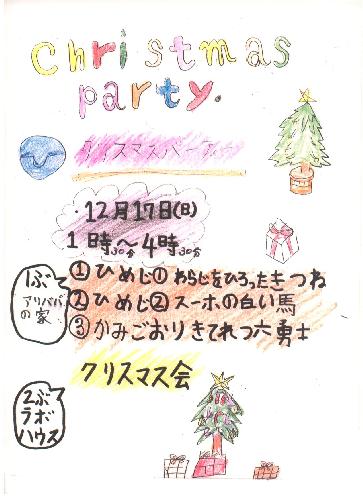 Christmas
party.
クリスマスパーティー
・12月17日(日)
1時30分～4時30分
1ぶ
アリババ
の家
①ひめじ①わらじをひろったきつね
②ひめじ②スーホの白い馬
③かみごおりきてれつ六勇士
クリスマス会
2ぶ
ラボ
ハウス